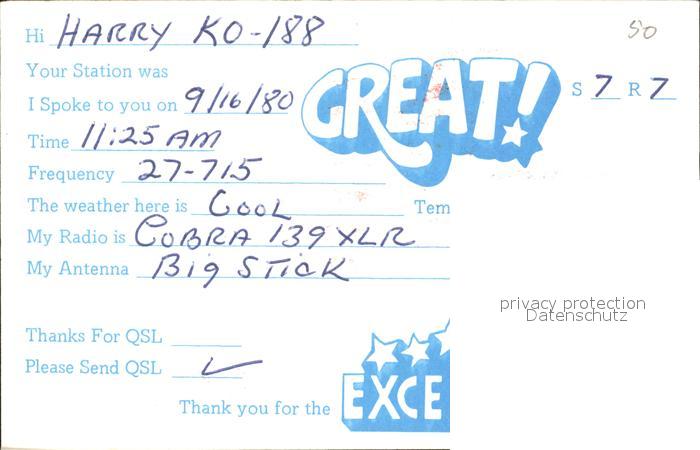 50
Hi HARRY KO-188
Your Station was GREAT! S 7 R 7
I Spoke to you on 9/16/80
Time 11:25 AM
Frequency 27-715
The weather here is COOL Tem
My Radio is COBRA 139 XLR
My Antenna Big STICK
privacy protection
Datenschutz
Thanks For QSL
Please Send QSL ✓
Thank you for the EXCE